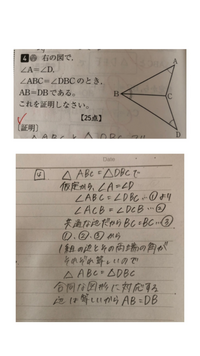 4 右の図で，
∠A＝∠D，
∠ABC＝∠DBCのとき，
AB＝DBである。
これを証明しなさい。
【25点】
[証明]
A
B
C
D
Date
4
△ABCと△DBCで
仮定から、∠A=∠D
∠ABC=∠DBC…①より
∠ACB=∠DCB…②
共通な辺だからBC=BC…③
①、②、③から
1組の辺とその両端の角が
それぞれ等しいので
△ABC≡△DBC
合同な図形に対応する
辺は等しいからAB=DB